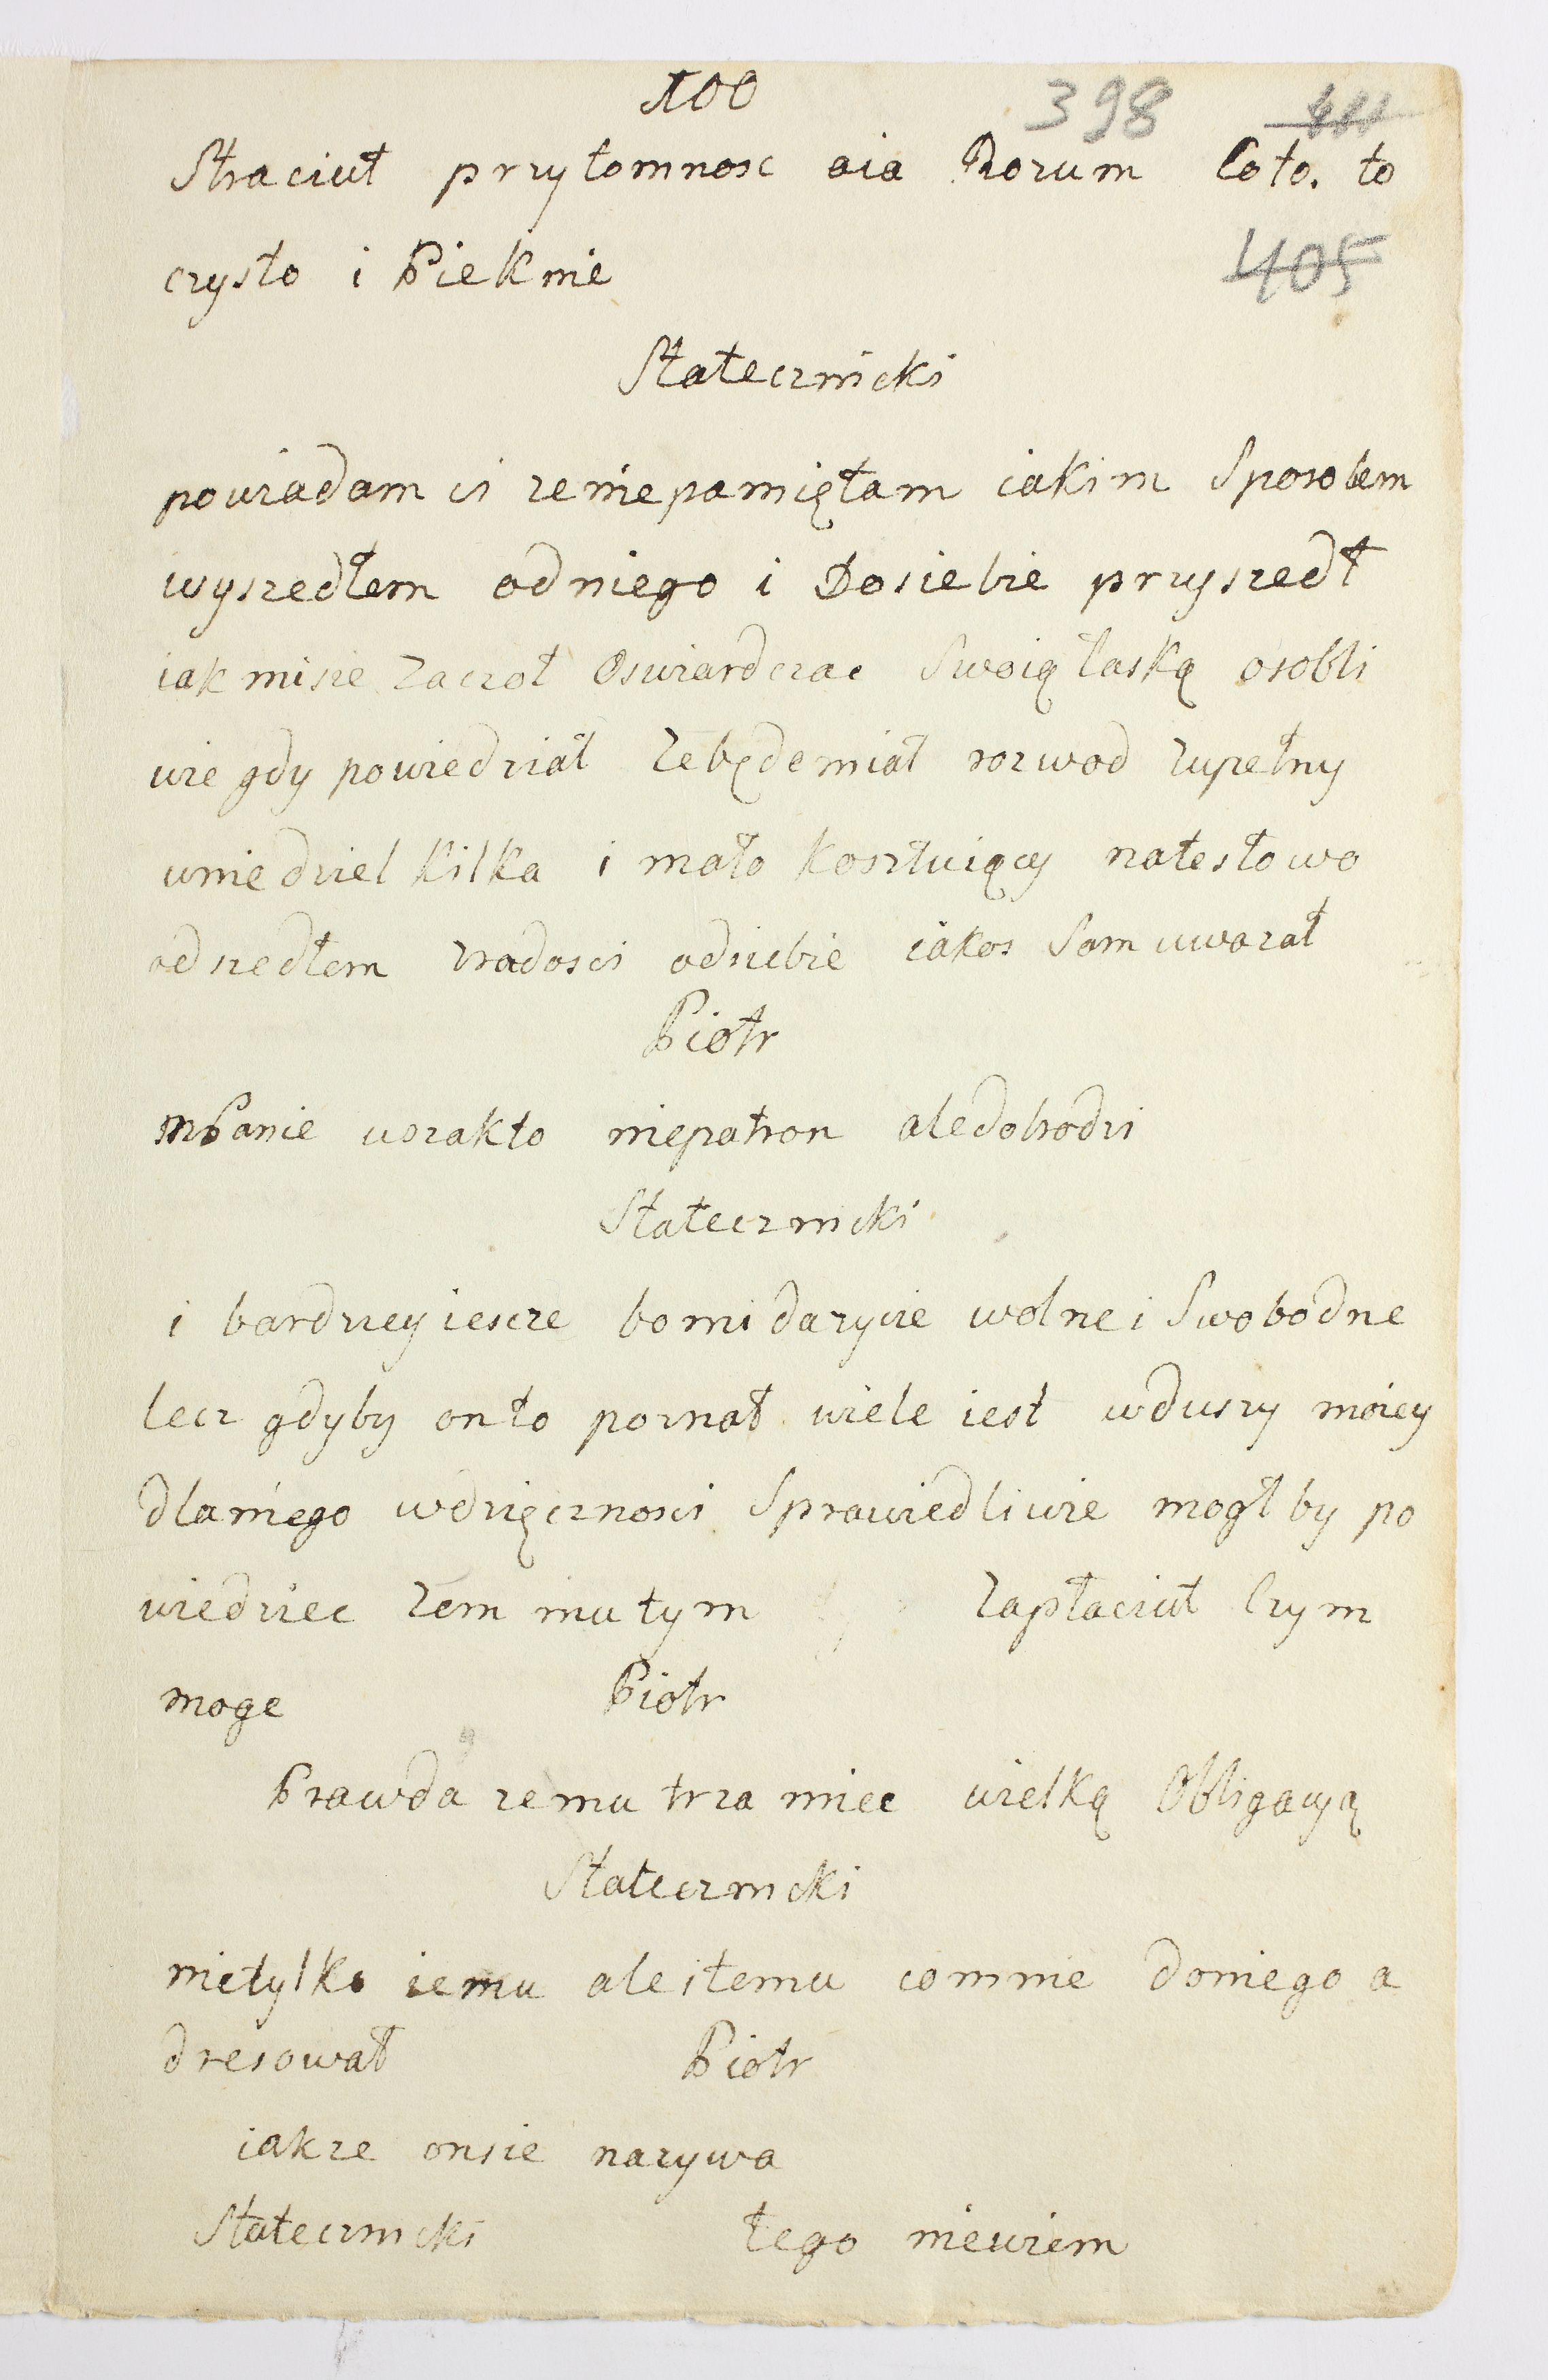 100
398
Straciuł przytomnosc aia Rozum Coto. to
czysto i Pieknie
405
Statecznicki
powiadam ci zeniepamiętam iakim Sposobem
wyszedłem odniego i Dosiebie przyszedł
iak misie zaczoł Oswiardczac Swoią łaską osobli
wie gdy powiedział Zebędemiał rozwod zupełny
wniedziel kilka i mało kosztuiący natesłowo
odszedłem zradosci odsiebie iakos Sam uwazał
Piotr
mPanie wszakto niepatron aledobrodzi
Statecznicki
i bardziey iescze bomi dazycie wolne i Swobodne
lecz gdyby onto poznał wiele iest wduszy moiey
dlaniego wdzięcznosci Sprawiedliwie mogł by po
wiedziec Zem mu tym Zapłaciuł Czym
moge Piotr
Prawda zemu trza miec wielką Obligacyą
Statecznicki
nietylko iemu aleitemu comnie doniego a
dresował Piotr
iakze onsie nazywa
Statecznicki tego niewiem